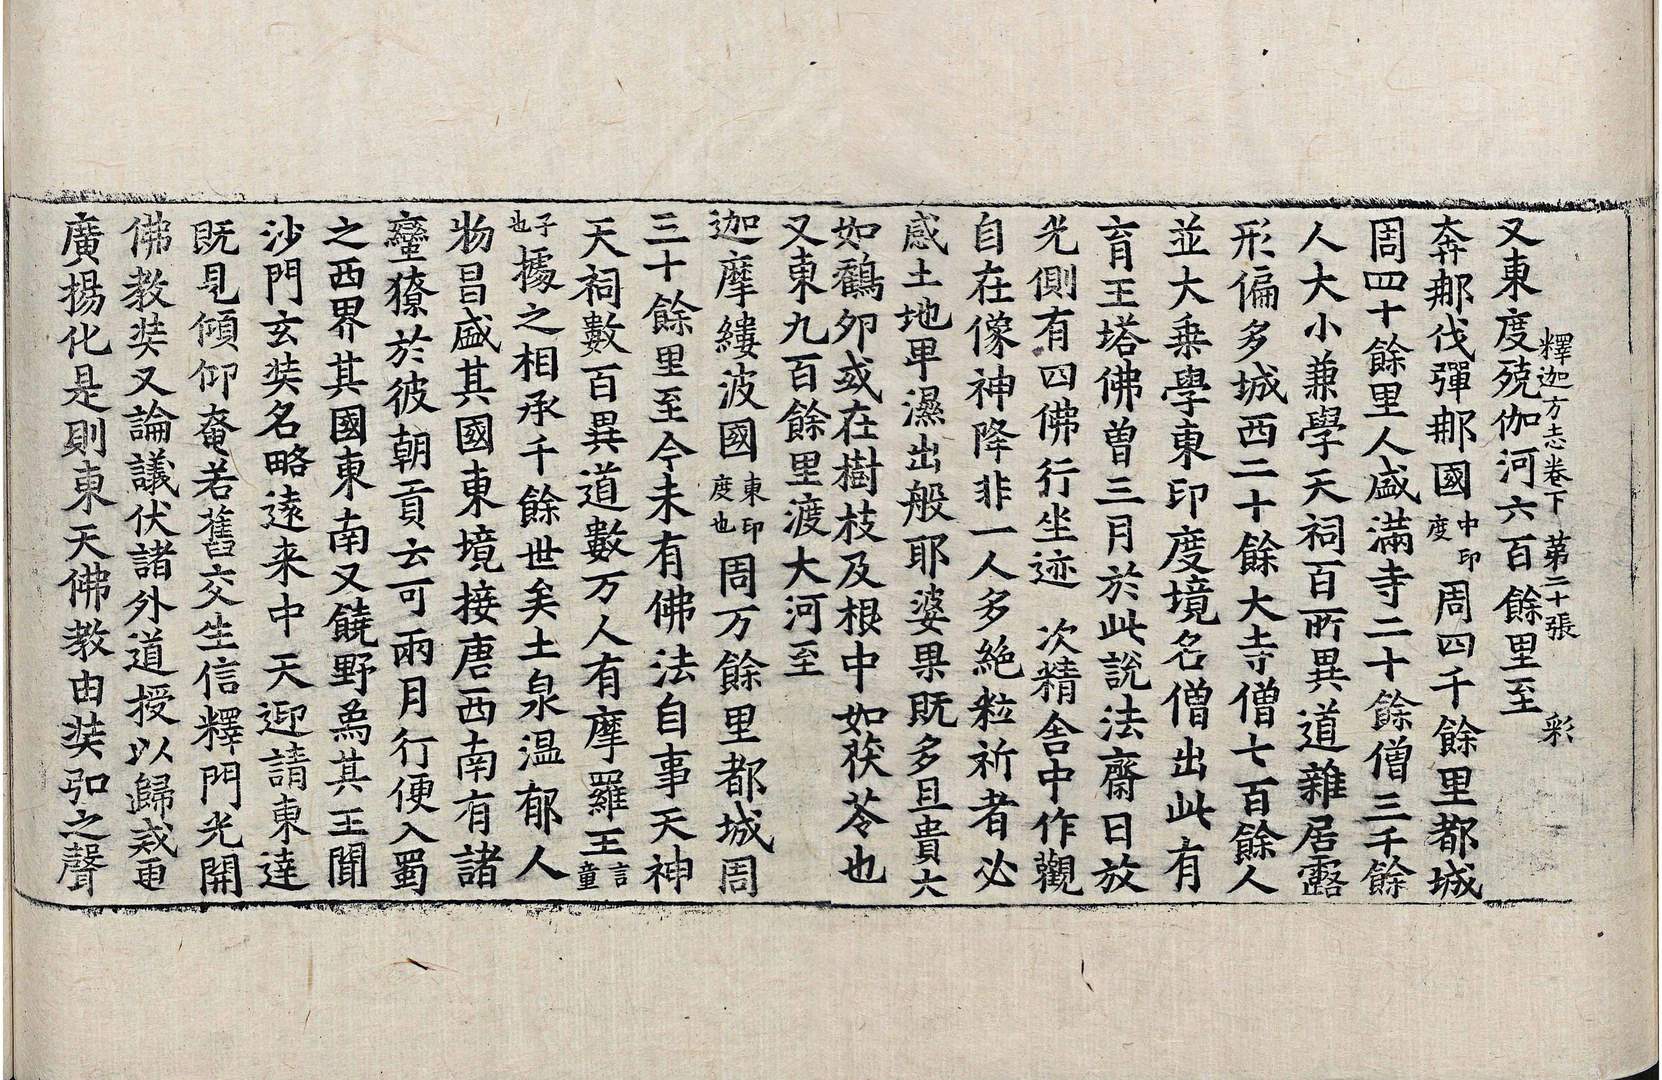 釋迦方志卷下 第二十張 彩
又東度殑伽河六百餘里至
奔那伐彈那國中印度周四千餘里都城
周四十餘里人盛滿寺二十餘僧三千餘
人大小兼學天祠百所異道雜居露
形偏多城西二十餘大寺僧七百餘人
並大乗學東印度境名僧出此有
育王塔佛曽三月於此說法齋日放
光側有四佛行坐迹 次精舎中作觀
自在像神降非一人多絶粒祈者必
感土地卑濕出般耶婆果既多且貴大
如鸖卵或在樹枝及根中如茯苓也
又東九百餘里渡大河至
迦摩縷波國東印度也周万餘里都城周
三十餘里至今未有佛法自事天神
天祠數百異道數万人有摩羅王言童
子也據之相承千餘世矣土泉温郁人
物昌盛其國東境接唐西南有諸
蠻獠於彼朝貢云可兩月行便入蜀
之西界其國東南又饒野為其王聞
沙門玄奘名略遠来中天迎請東達
既見傾仰奄若舊交生信釋門光開
佛教奘又論議伏諸外道授以歸戒更
廣揚化是則東天佛教由奘弘之聲